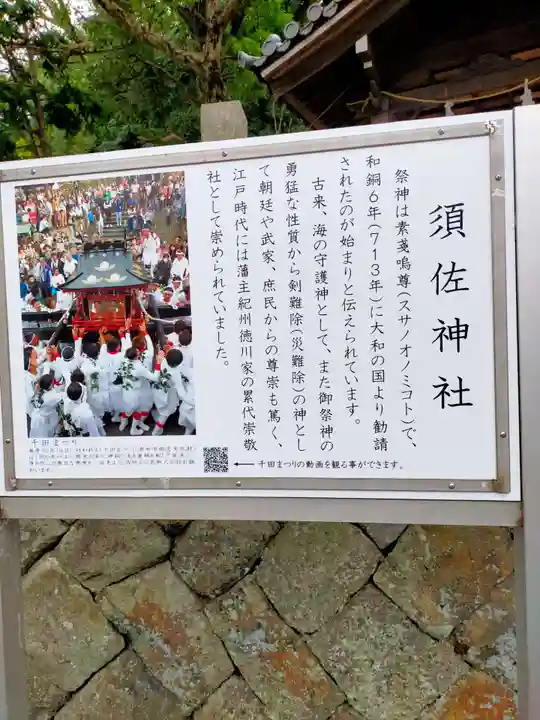 須佐神社
祭神は素戔嗚尊(スサノオノミコト)で、
和銅6年(713年)に大和の国より勧請
されたのが始まりと伝えられています。
古来、海の守護神として、また御祭神の
勇猛な性質から剣難除(災難除)の神とし
て朝廷や武家、庶民からの尊崇も篤く、
江戸時代には藩主紀州徳川家の累代崇敬
社として崇められていました。
千田まつり
← 千田まつりの動画を観る事ができます。